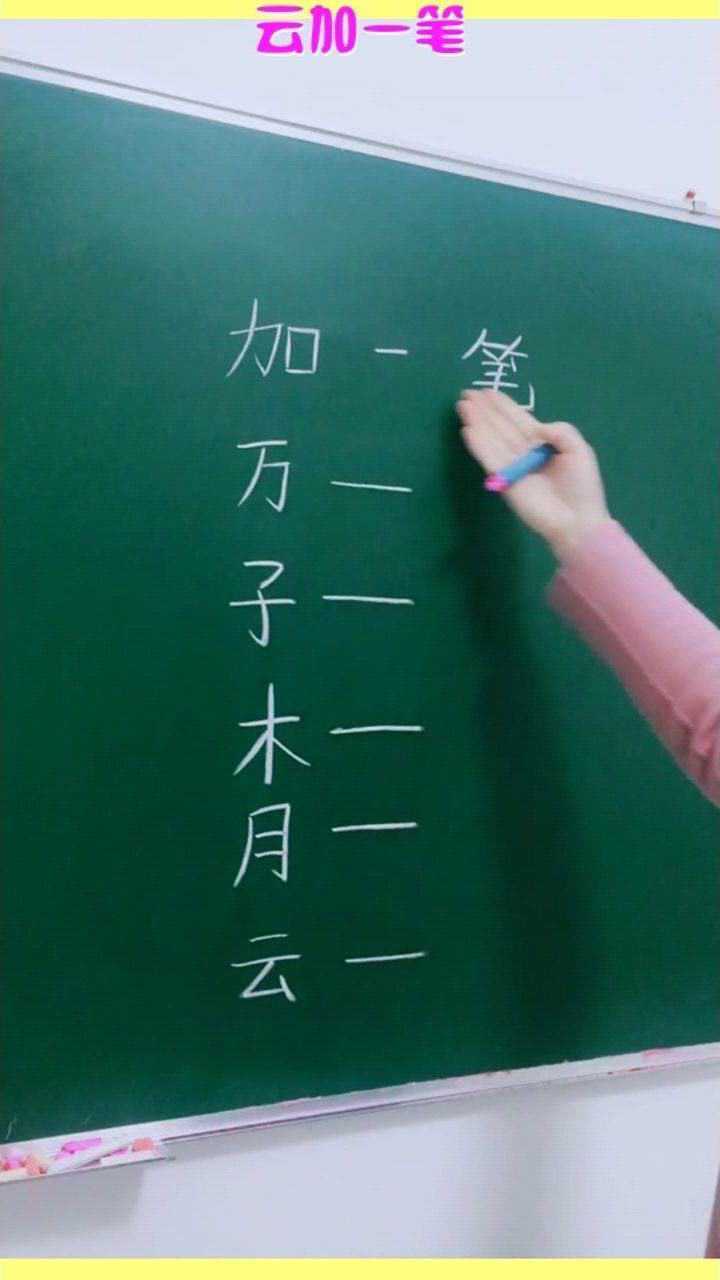 云加一笔
加一笔
万—
子—
木—
月—
云—